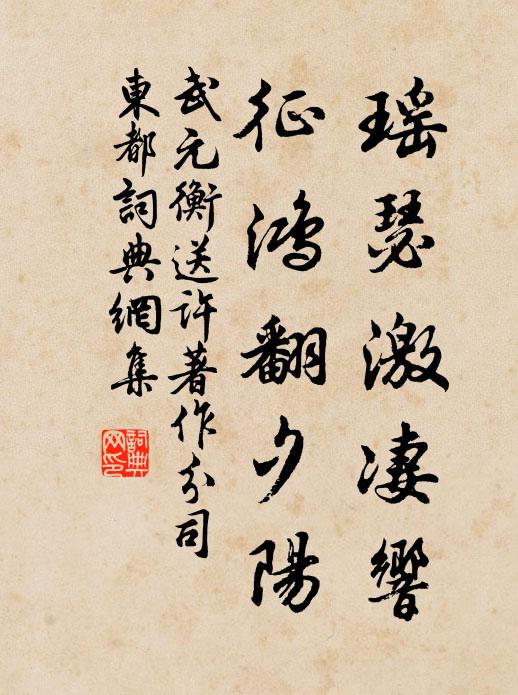 瑶瑟激凄響
征鴻翻夕陽
武元衡送許著作分司
東都詞典網集
詞典
网印